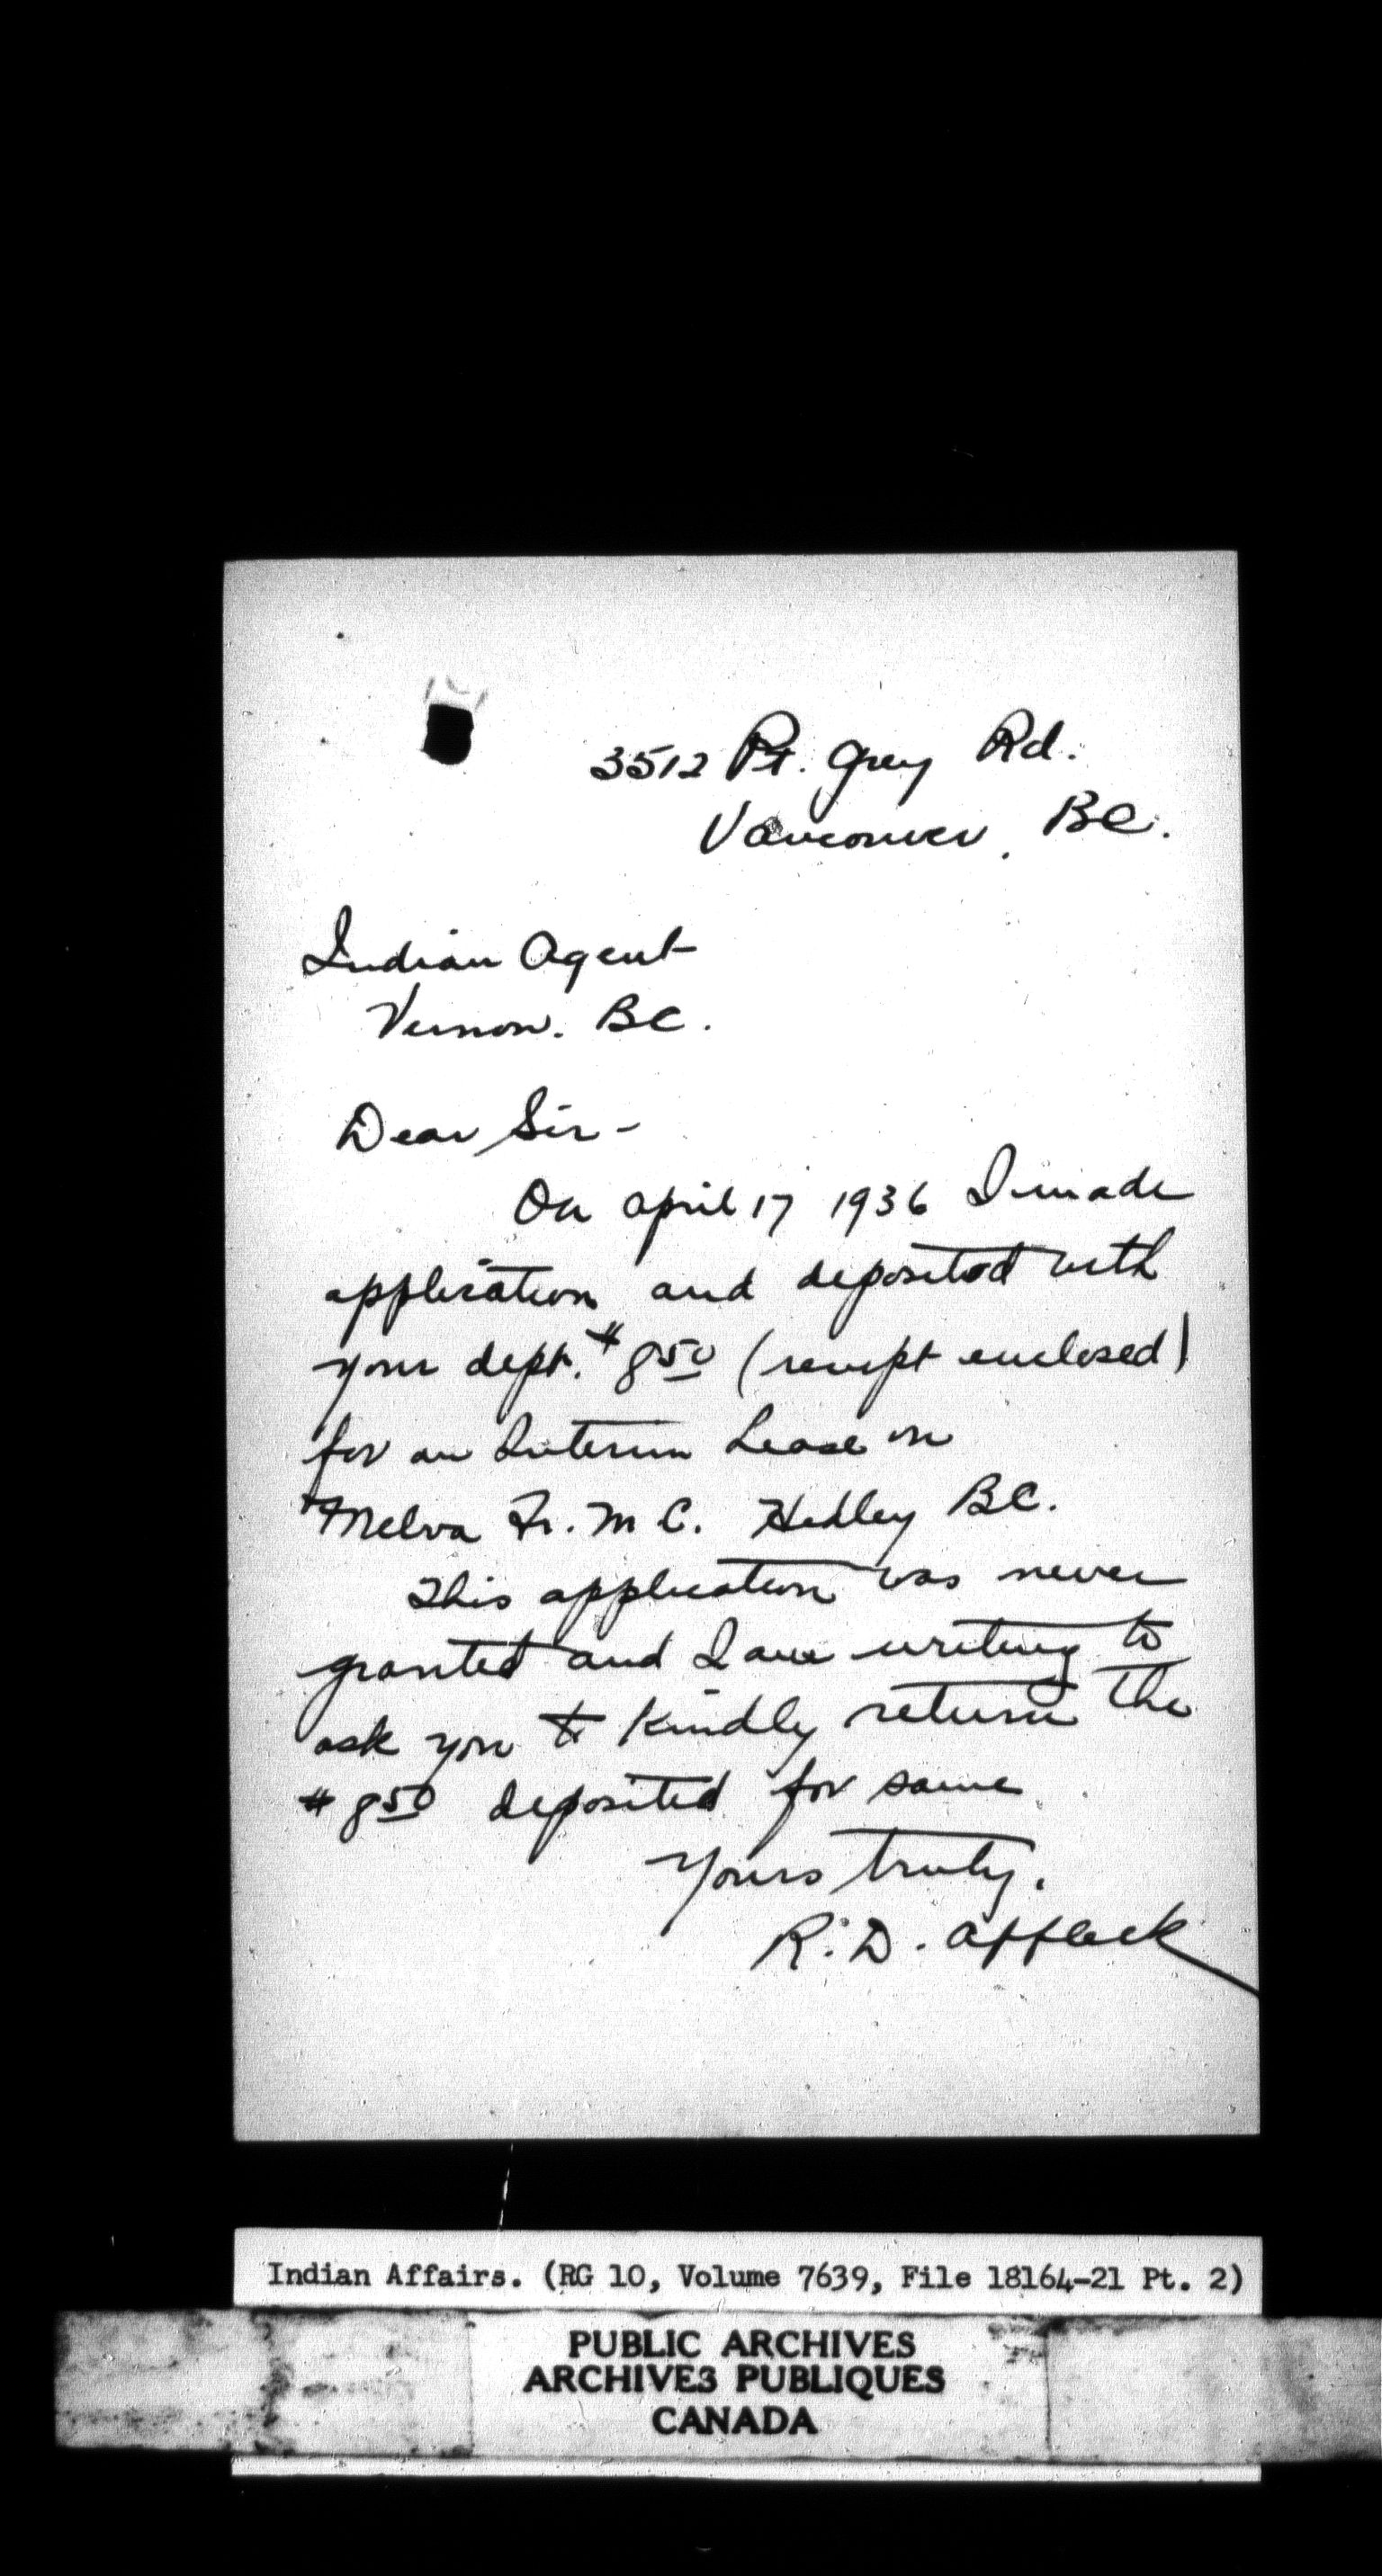 3512 Pt. Grey Rd.
Vancouver, BC.
Indian Agent
Vernon. BC.
Dear Sir -
On April 17 1936 I made
application and deposited with
your dept. $8 50 (receipt enclosed)
for an Interim Lease on
Melva Fr. M C. Hedley BC.
This application was never
granted and I am writing to
ask you to kindly return the
$8 50 deposited for same.
Yours truly.
R. D. Affleck
Indian Affairs. (RG 10, Volume 7639, File 18164-21 Pt. 2)
PUBLIC ARCHIVES
ARCHIVES PUBLIQUES
CANADA